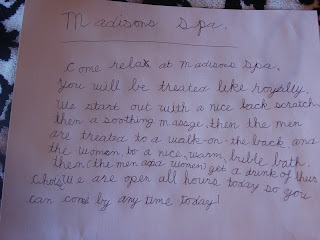 Madisons Spa.
Come relax at Madisons Spa.
You will be treated like royalty.
We start out with a nice back scratch,
then a soothing massge, then the men
are treated to a walk-on-the back and
the women, to a nice, warm, buble bath.
Then (the men and women) get a drink of thier
We are open all hours today so you
can come by any time today!